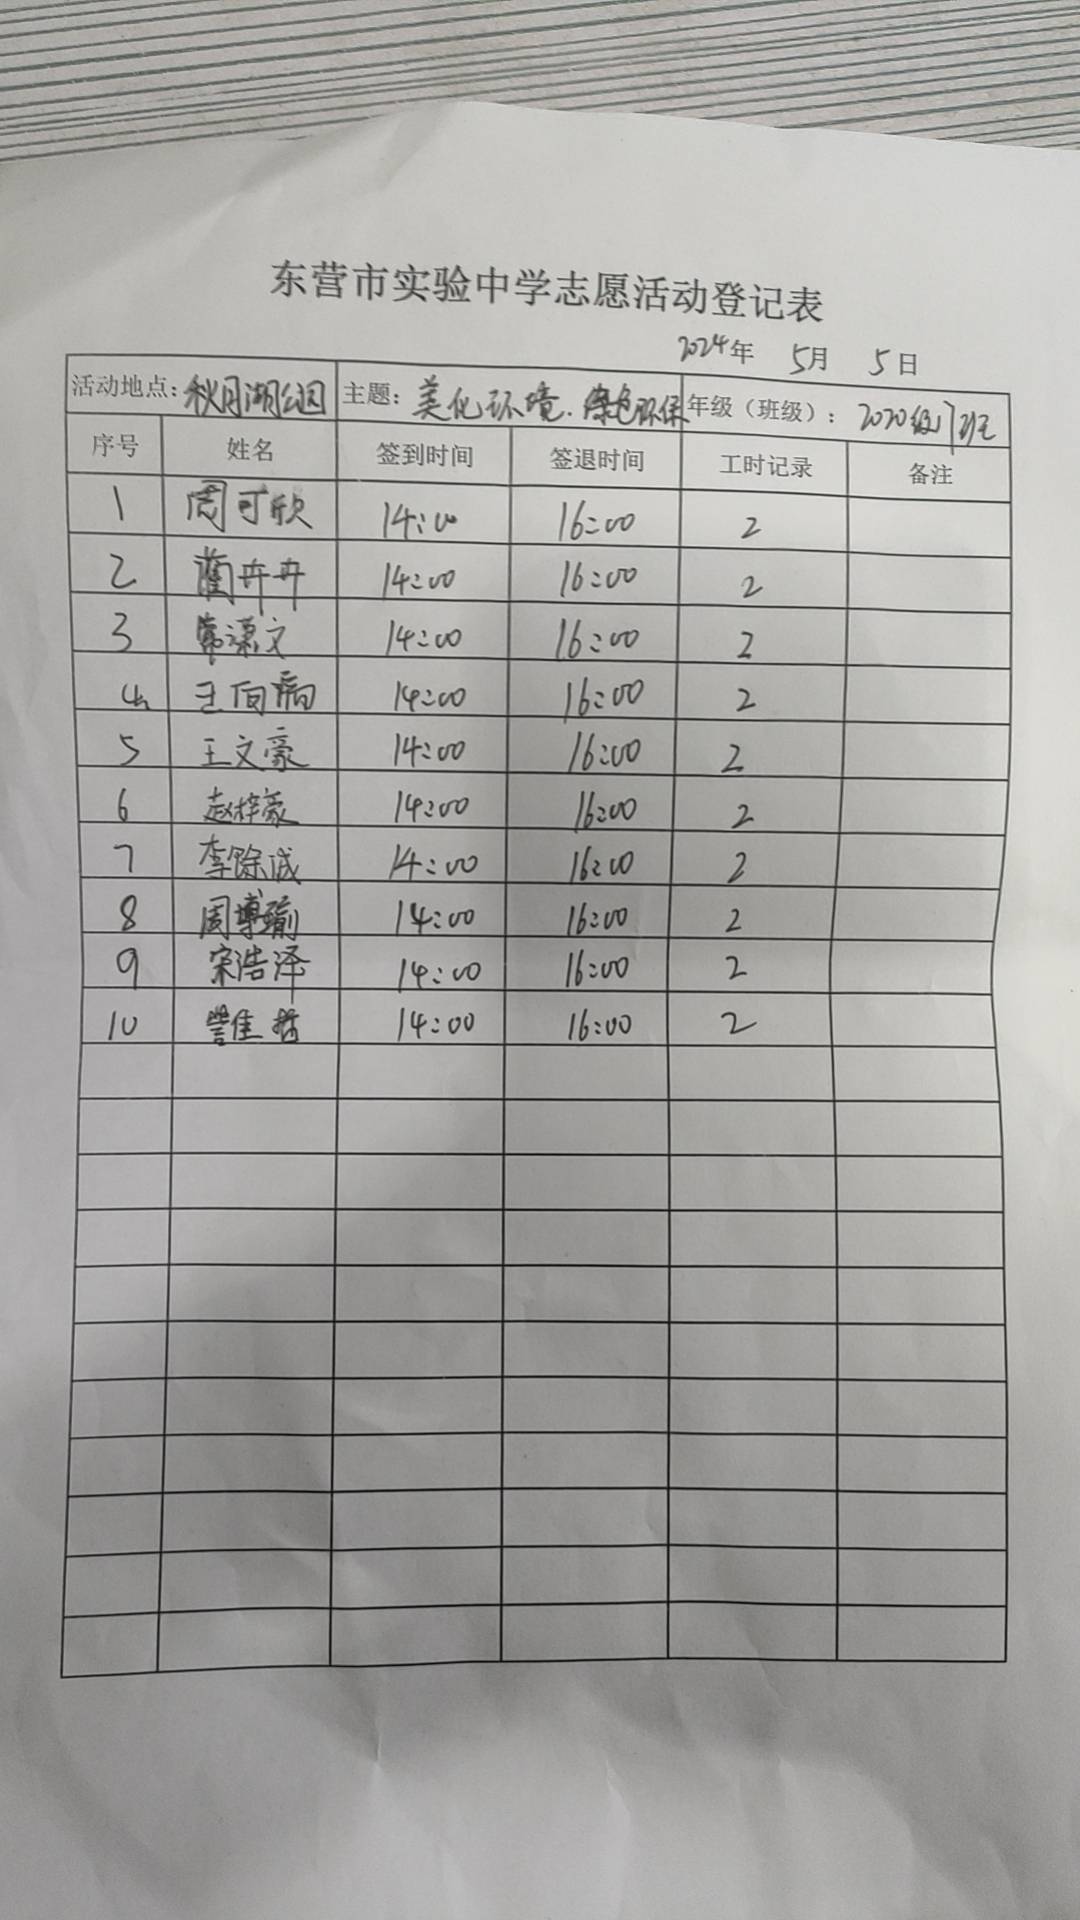 东营市实验中学志愿活动登记表
2024年 5月 5日
活动地点：秋月湖公园 主题：美化环境.绿色环保 年级（班级）：2020级17班
序号 姓名 签到时间 签退时间 工时记录 备注
1 周可欣 14:00 16:00 2
2 蔺卉卉 14:00 16:00 2
3 常潇文 14:00 16:00 2
4 王 14:00 16:00 2
5 王文豪 14:00 16:00 2
6 赵梓豪 14:00 16:00 2
7 李馀诚 14:00 16:00 2
8 周博瑜 14:00 16:00 2
9 宋浩泽 14:00 16:00 2
10 佳 14:00 16:00 2